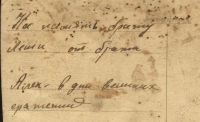 На память брату
Леши от брата
Алек- в дни великих
сражений